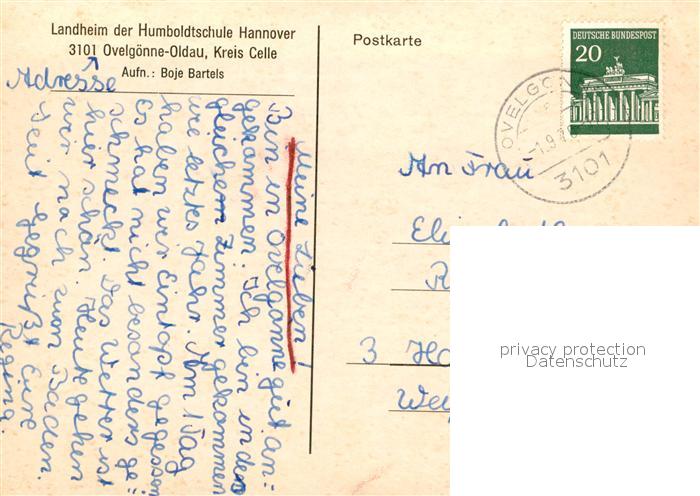 Landheim der Humboldtschule Hannover
3101 Ovelgönne-Oldau, Kreis Celle
Aufn.: Boje Bartels
Adresse
Meine Lieben!
Bin in Ovelgönne gut an=
gekommen. Ich bin in den
gleichen Zimmer gekommen
wie letztes Jahr. Am 1 Tag
haben wir Eintopf gegessen
Es hat nicht besonders ge=
schmeckt. Das Wetter ist
hier schön. Heute gehen
wir nach zum Baden.
Seit gegrüßt Eure
Regina.
Postkarte
DEUTSCHE BUNDESPOST
20
OVELGÖ
-1.9.
3101
An Frau
3
privacy protection
Datenschutz